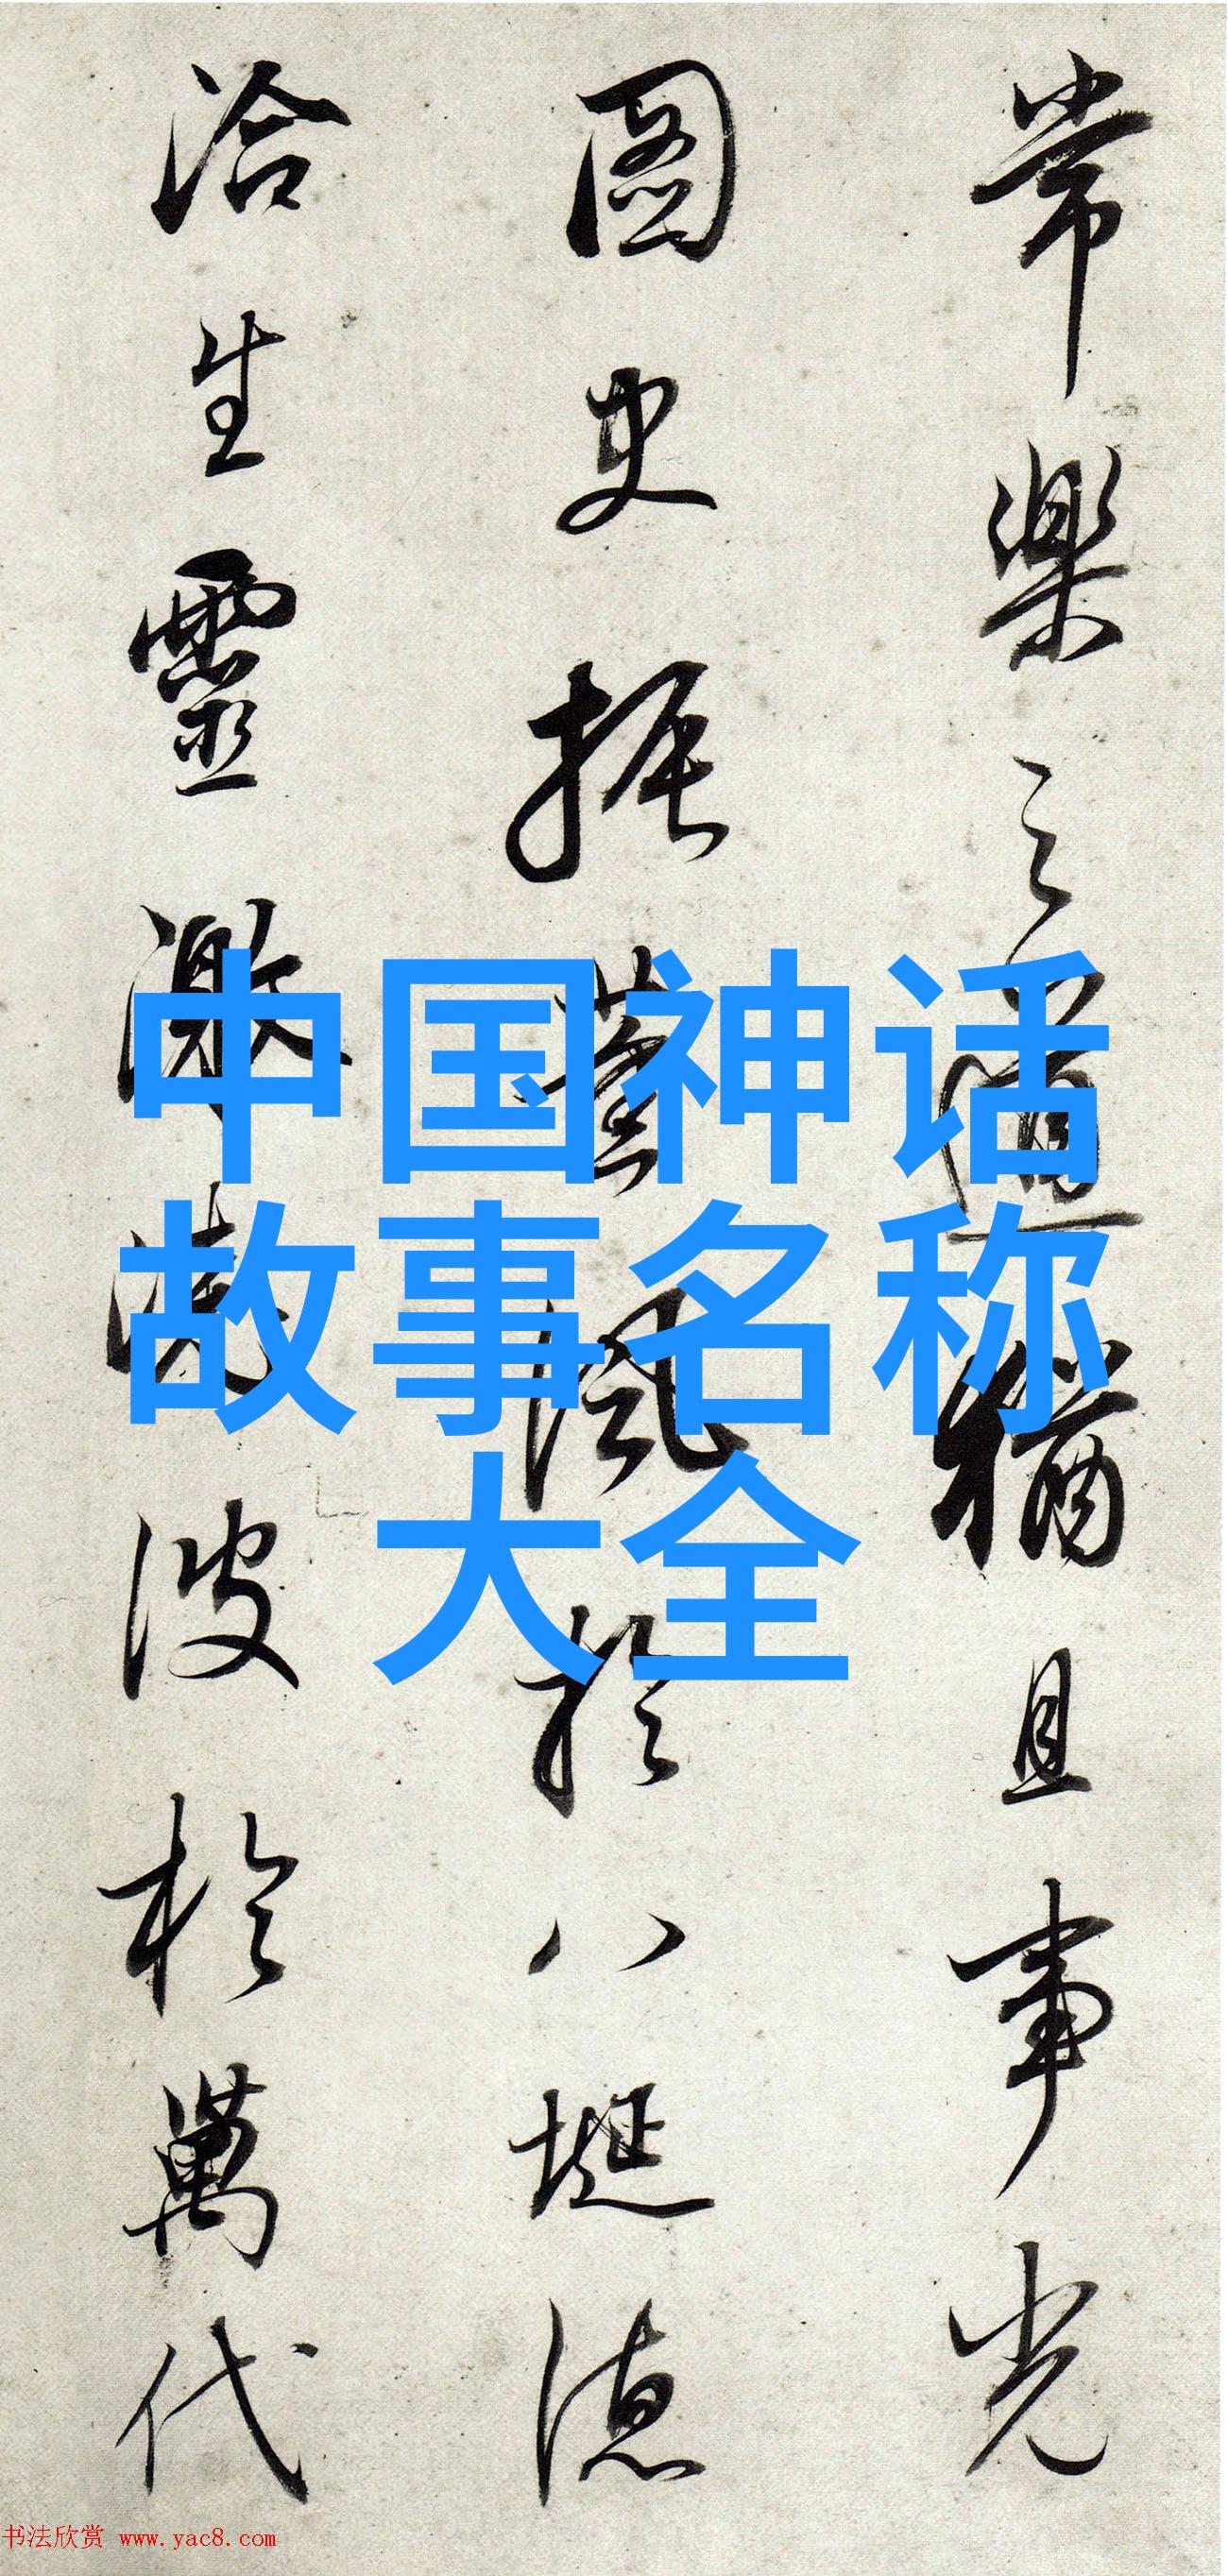 常樂之道猶且事光
圖史振薰風於八埏德
洽生靈激清波於萬代
中国神话
故事名称
大全
书法欣赏 www.yac8.com